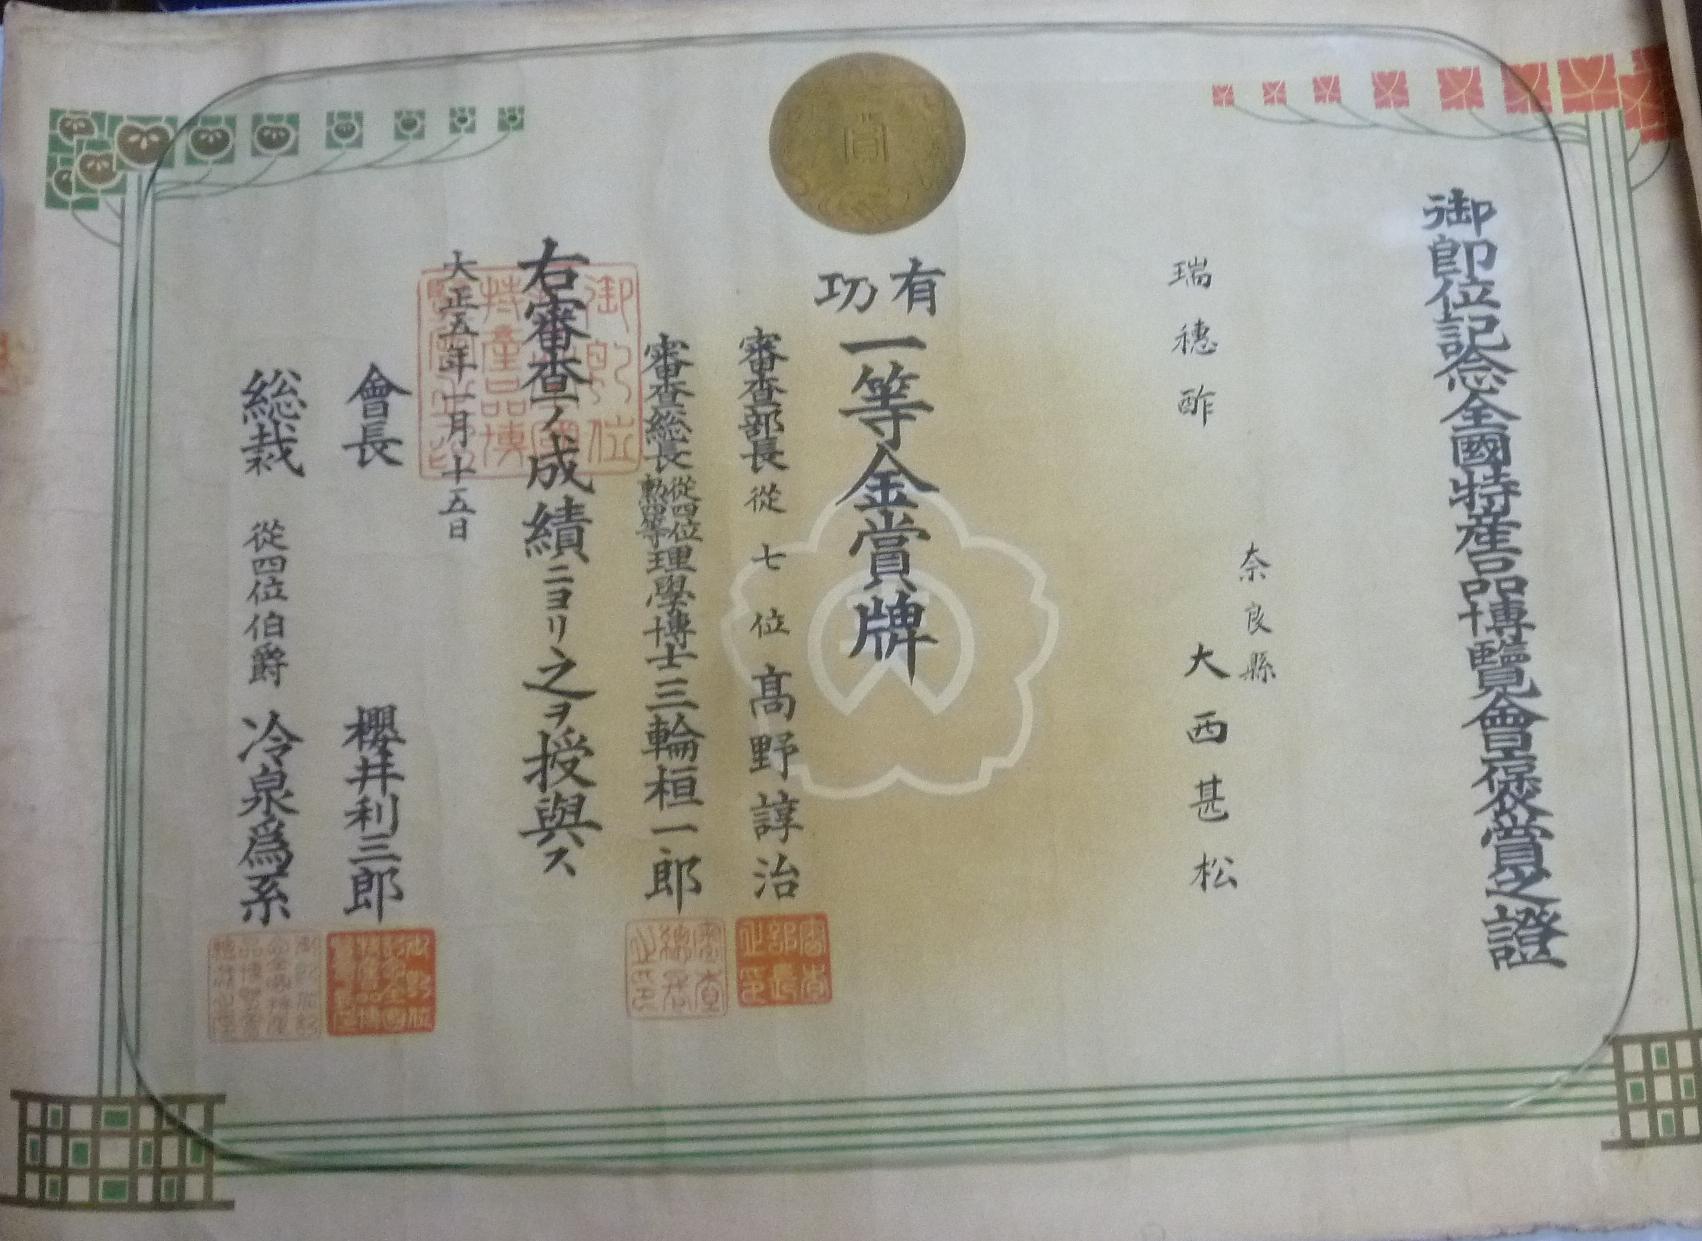 御即位記念全國特産品博覽會褒賞之證
瑞穗酢
奈良縣
大西甚松
賞
有功
一等金賞牌
審査部長從七位高野諄治
審査部長之印
審査総長從四位勲四等理學博士三輪桓一郎
審査總長之印
右審査ノ成績ニヨリ之ヲ授與ス
大正五年一月十五日
會長 櫻井利三郎
総裁 從四位伯爵 冷泉爲系